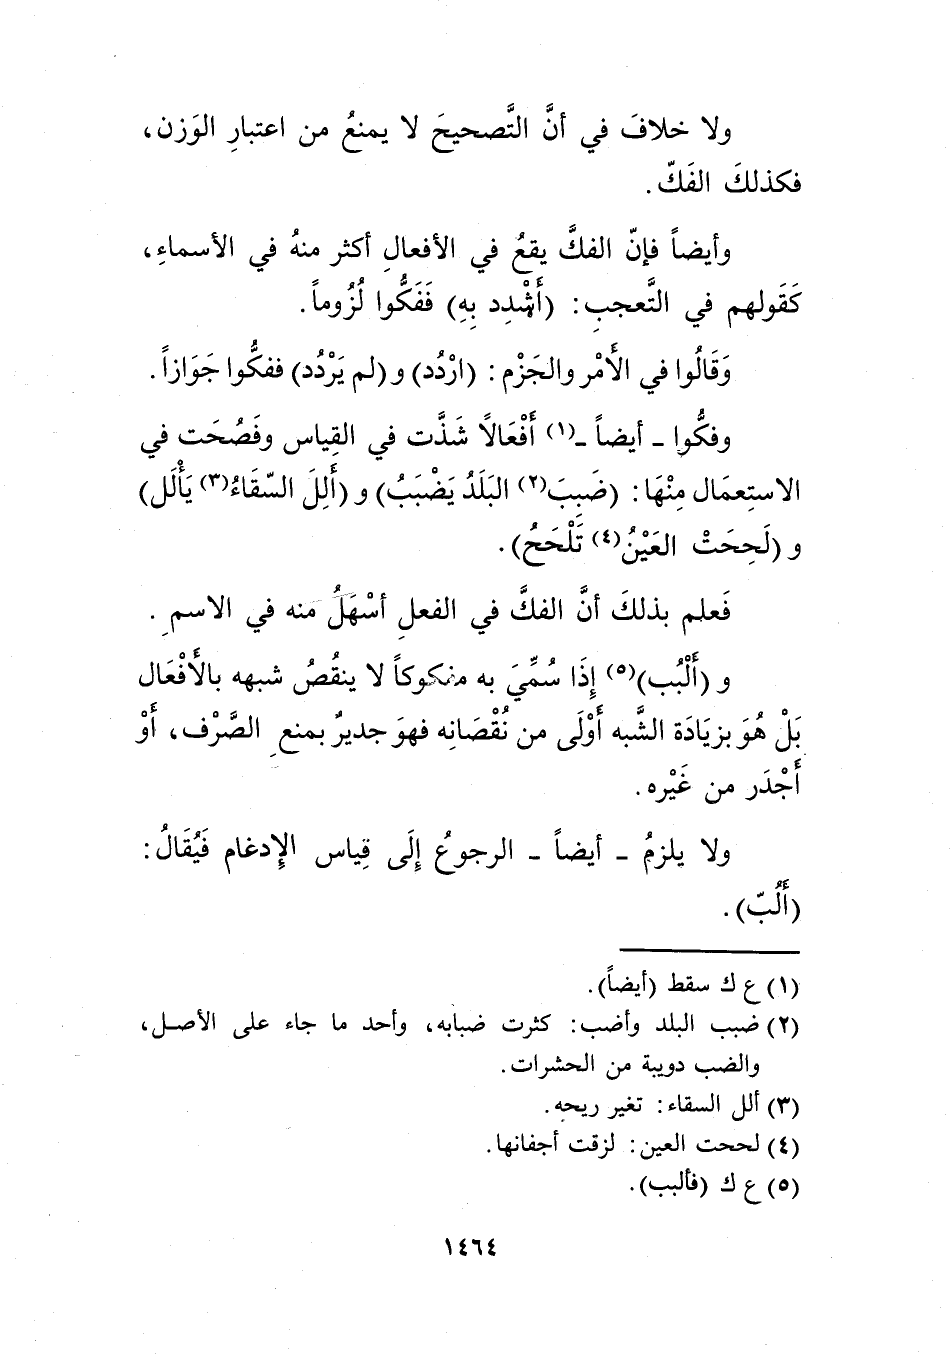 ولا خلافَ في أنَّ التَّصحيحَ لا يمنعُ من اعتبارِ الوَزن،
فكذلكَ الفَكّ.
وأيضاً فإنّ الفكَّ يقعُ في الأفعالِ أكثر منهُ في الأسماءِ،
كَقَولهم في التَّعجبِ: (أَشْدِد بِهِ) فَفَكُّوا لُزُوماً.
وَقَالُوا في الأَمْر والجَزْم: (ارْدُد) و (لم يَرْدُد) ففكُّوا جَوَازاً.
وفكُّوا - أيضاً -(١) أَفْعَالاً شَذَّت في القِياس وفَصُحَت في
الاستِعمَال مِنْهَا: (ضَبِبَ(٢) البَلَدُ يَضْبَبُ) و (أَلِلَ السِّقَاءُ(٣) يَأْلَل)
و (لَحِحَتْ العَيْنُ(٤) تَلْحَحُ).
فَعلم بذلكَ أنَّ الفكَّ في الفعلِ أسْهَلُ منه في الاسمِ.
و (أَلْبُب)(٥) إِذَا سُمِّيَ به مفكوكاً لا ينقُصُ شبهه بالأَفْعَال
بَلْ هُوَ بزيَادَة الشَّبه أوْلَى من نُقْصَانِه فهوَ جديرٌ بمنعِ الصَّرْف، أَوْ
أَجْدَر من غَيْره.
ولا يلزمُ - أيضاً - الرجوعُ إلَى قِياس الإِدغام فَيُقَالُ:
(أَلُبّ).
(١) ع ك سقط (أيضاً).
(٢) ضبب البلد وأضب: كثرت ضبابه، وأحد ما جاء على الأصل،
والضب دويبة من الحشرات.
(٣) ألل السقاء: تغير ريحه.
(٤) لححت العين: لزقت أجفانها.
(٥) ع ك (فألبب).
١٤٦٤